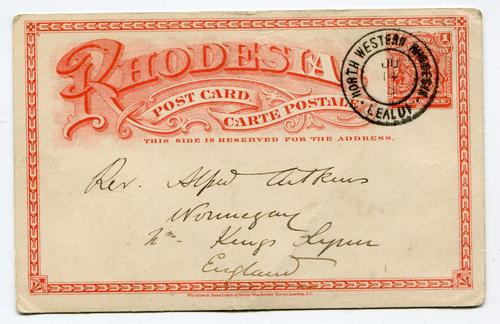 RHODESIA
POST CARD
CARTE POSTALE
THIS SIDE IS RESERVED FOR THE ADDRESS.
1
NORTH WESTERN RHODESIA
JU
LEALUI
Rev. Alfred Aitkens
Wormegay
Nr. Kings Lynn
England
Waterlow & Sons Limited, Great Winchester Street, London, E.C.